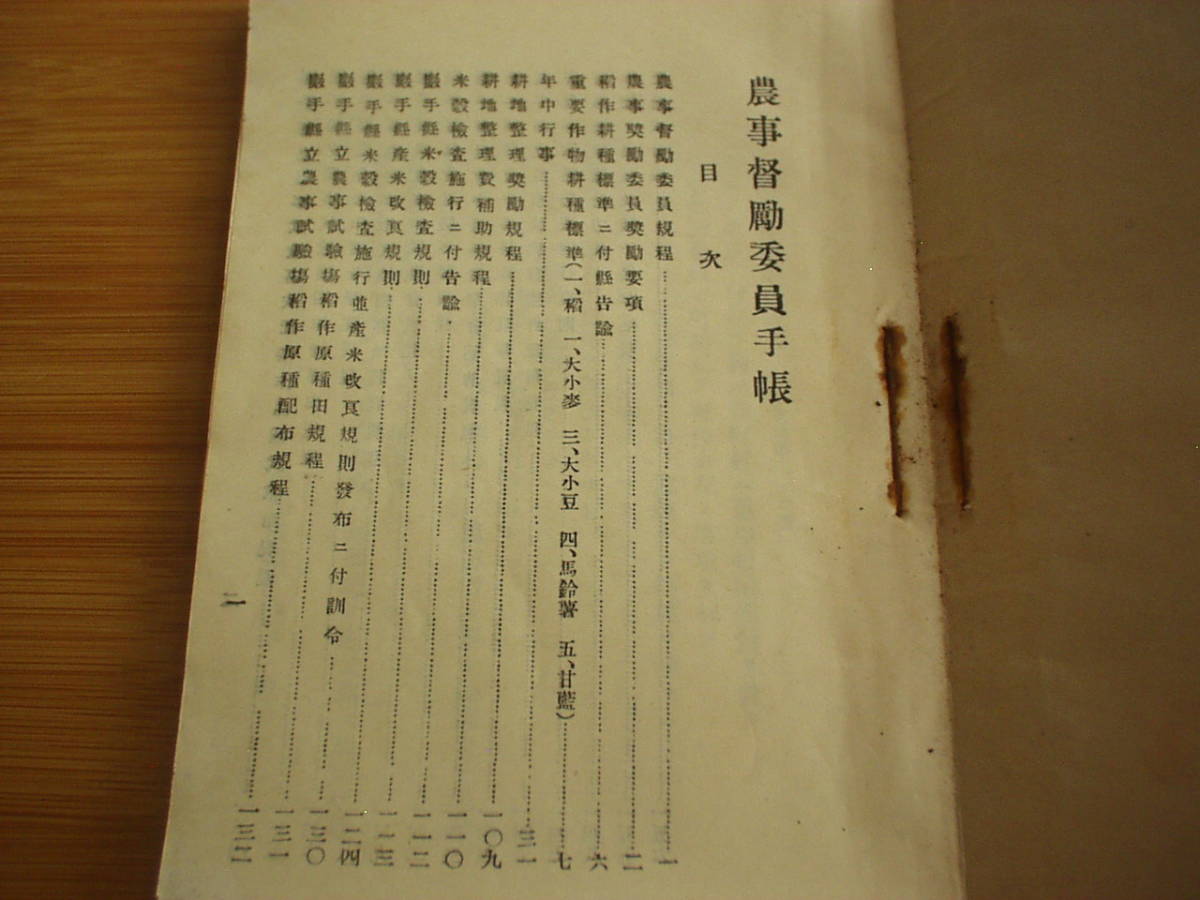 農事督勵委員手帳
目次
農事督勵委員規程……一
農事奬勵委員奬勵要項……二
稻作耕種標準ニ付縣告諭……六
重要作物耕種標準(一、稻 一、大小麥 三、大小豆 四、馬鈴薯 五、甘藍)……七
年中行事……三一
耕地整理奬勵規程……一〇九
耕地整理費補助規程……一一〇
米穀檢査施行ニ付告諭……一一二
巖手縣米穀檢査規則……一一三
巖手縣產米改良規則……一二四
巖手縣米穀檢査施行並產米改良規則發布ニ付訓令……一三〇
巖手縣立農事試驗場稻作原種田規程……一三一
巖手縣立農事試驗場稻作原種配布規程……一三二